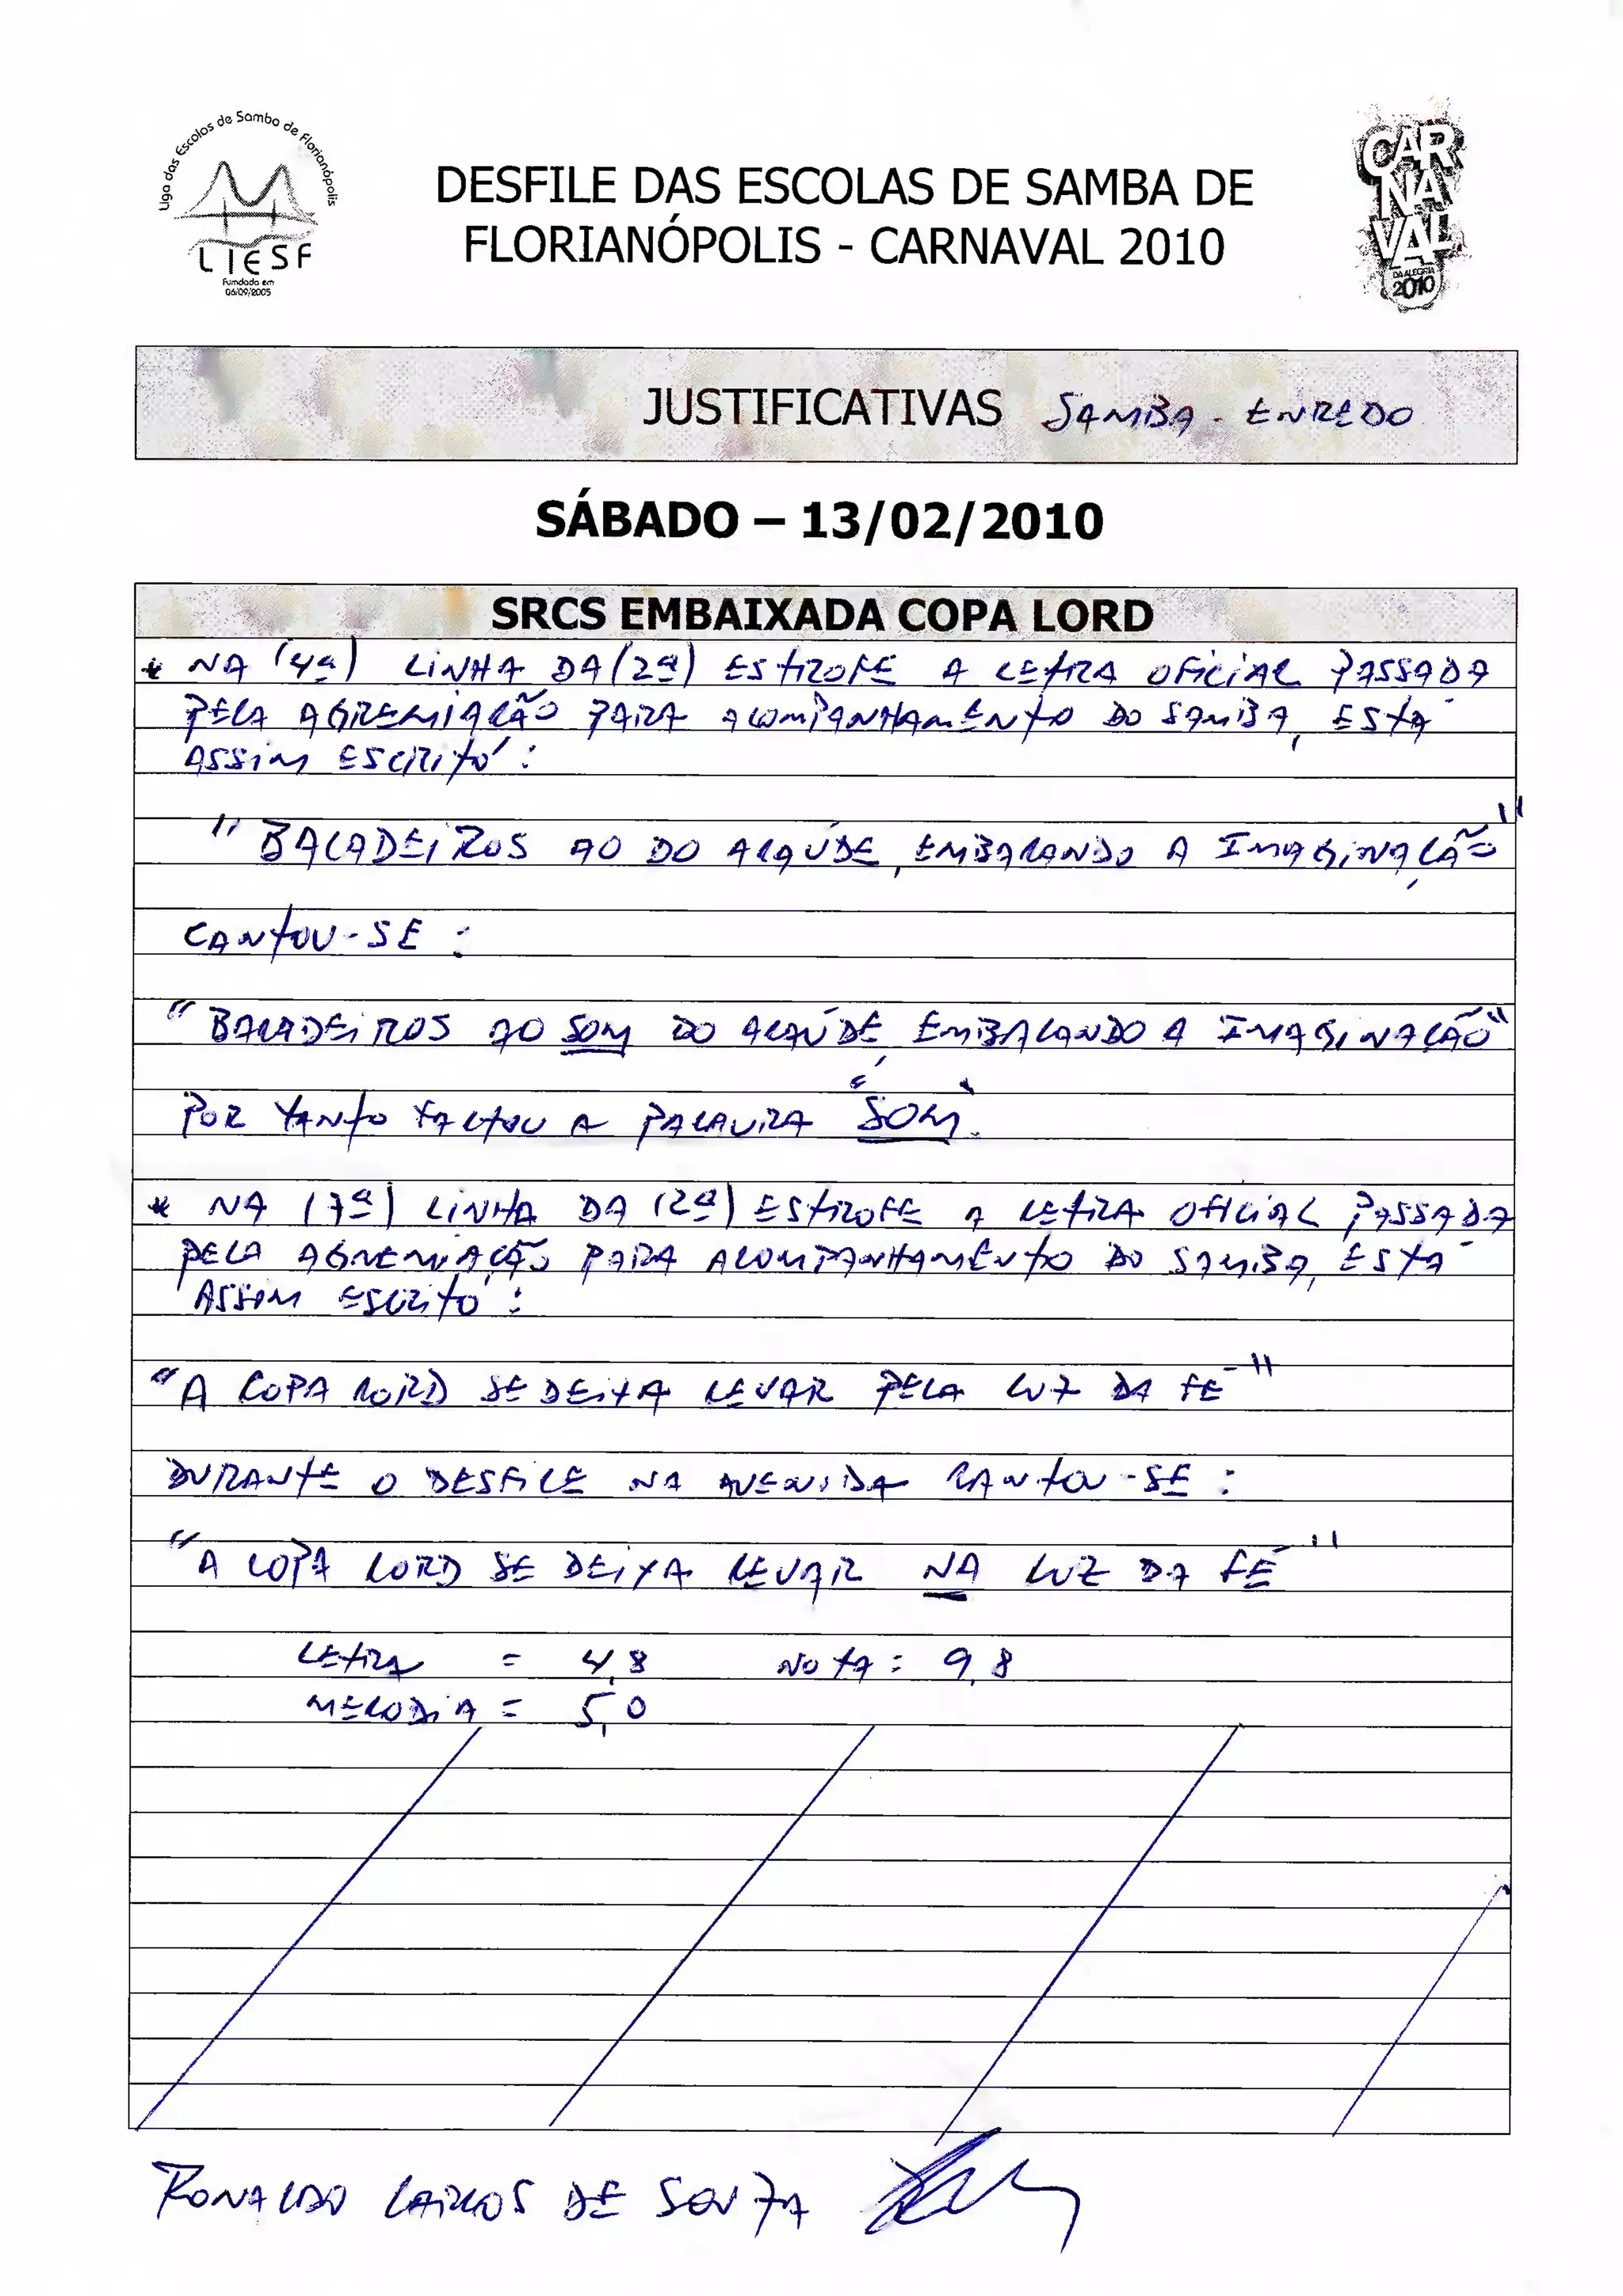 Liga das Escolas de Samba de Florianópolis
LIESF
Fundada em
06/09/2005
DESFILE DAS ESCOLAS DE SAMBA DE
FLORIANÓPOLIS - CARNAVAL 2010
CAR
NA
VAL
DA ALEGRIA
2010
JUSTIFICATIVAS SAMBA - ENREDO
SÁBADO – 13/02/2010
SRCS EMBAIXADA COPA LORD
* NA (4ª) LINHA DA (2ª) ESTROFE A LETRA OFICIAL PASSADA
PELA AGREMIAÇÃO PARA ACOMPANHAMENTO DO SAMBA, ESTÁ
ASSIM ESCRITO :
"BALADEIROS AO DO ALAÚDE, EMBALANDO A IMAGINAÇÃO"
CANTOU-SE :
"BALADEIROS AO SOM DO ALAÚDE, EMBALANDO A IMAGINAÇÃO"
POR TANTO FALTOU A PALAVRA "SOM".
* NA (7ª) LINHA DA (2ª) ESTROFE A LETRA OFICIAL PASSADA
PELA AGREMIAÇÃO PARA ACOMPANHAMENTO DO SAMBA, ESTÁ
ASSIM ESCRITO :
"A COPA LORD SE DEIXA LEVAR PELA LUZ DA FÉ"
DURANTE O DESFILE NA AVENIDA CANTOU-SE :
"A COPA LORD SE DEIXA LEVAR NA LUZ DA FÉ"
LETRA = 4,8 NOTA : 9,8
MELODIA = 5,0
RONALDO CARLOS DE SOUZA